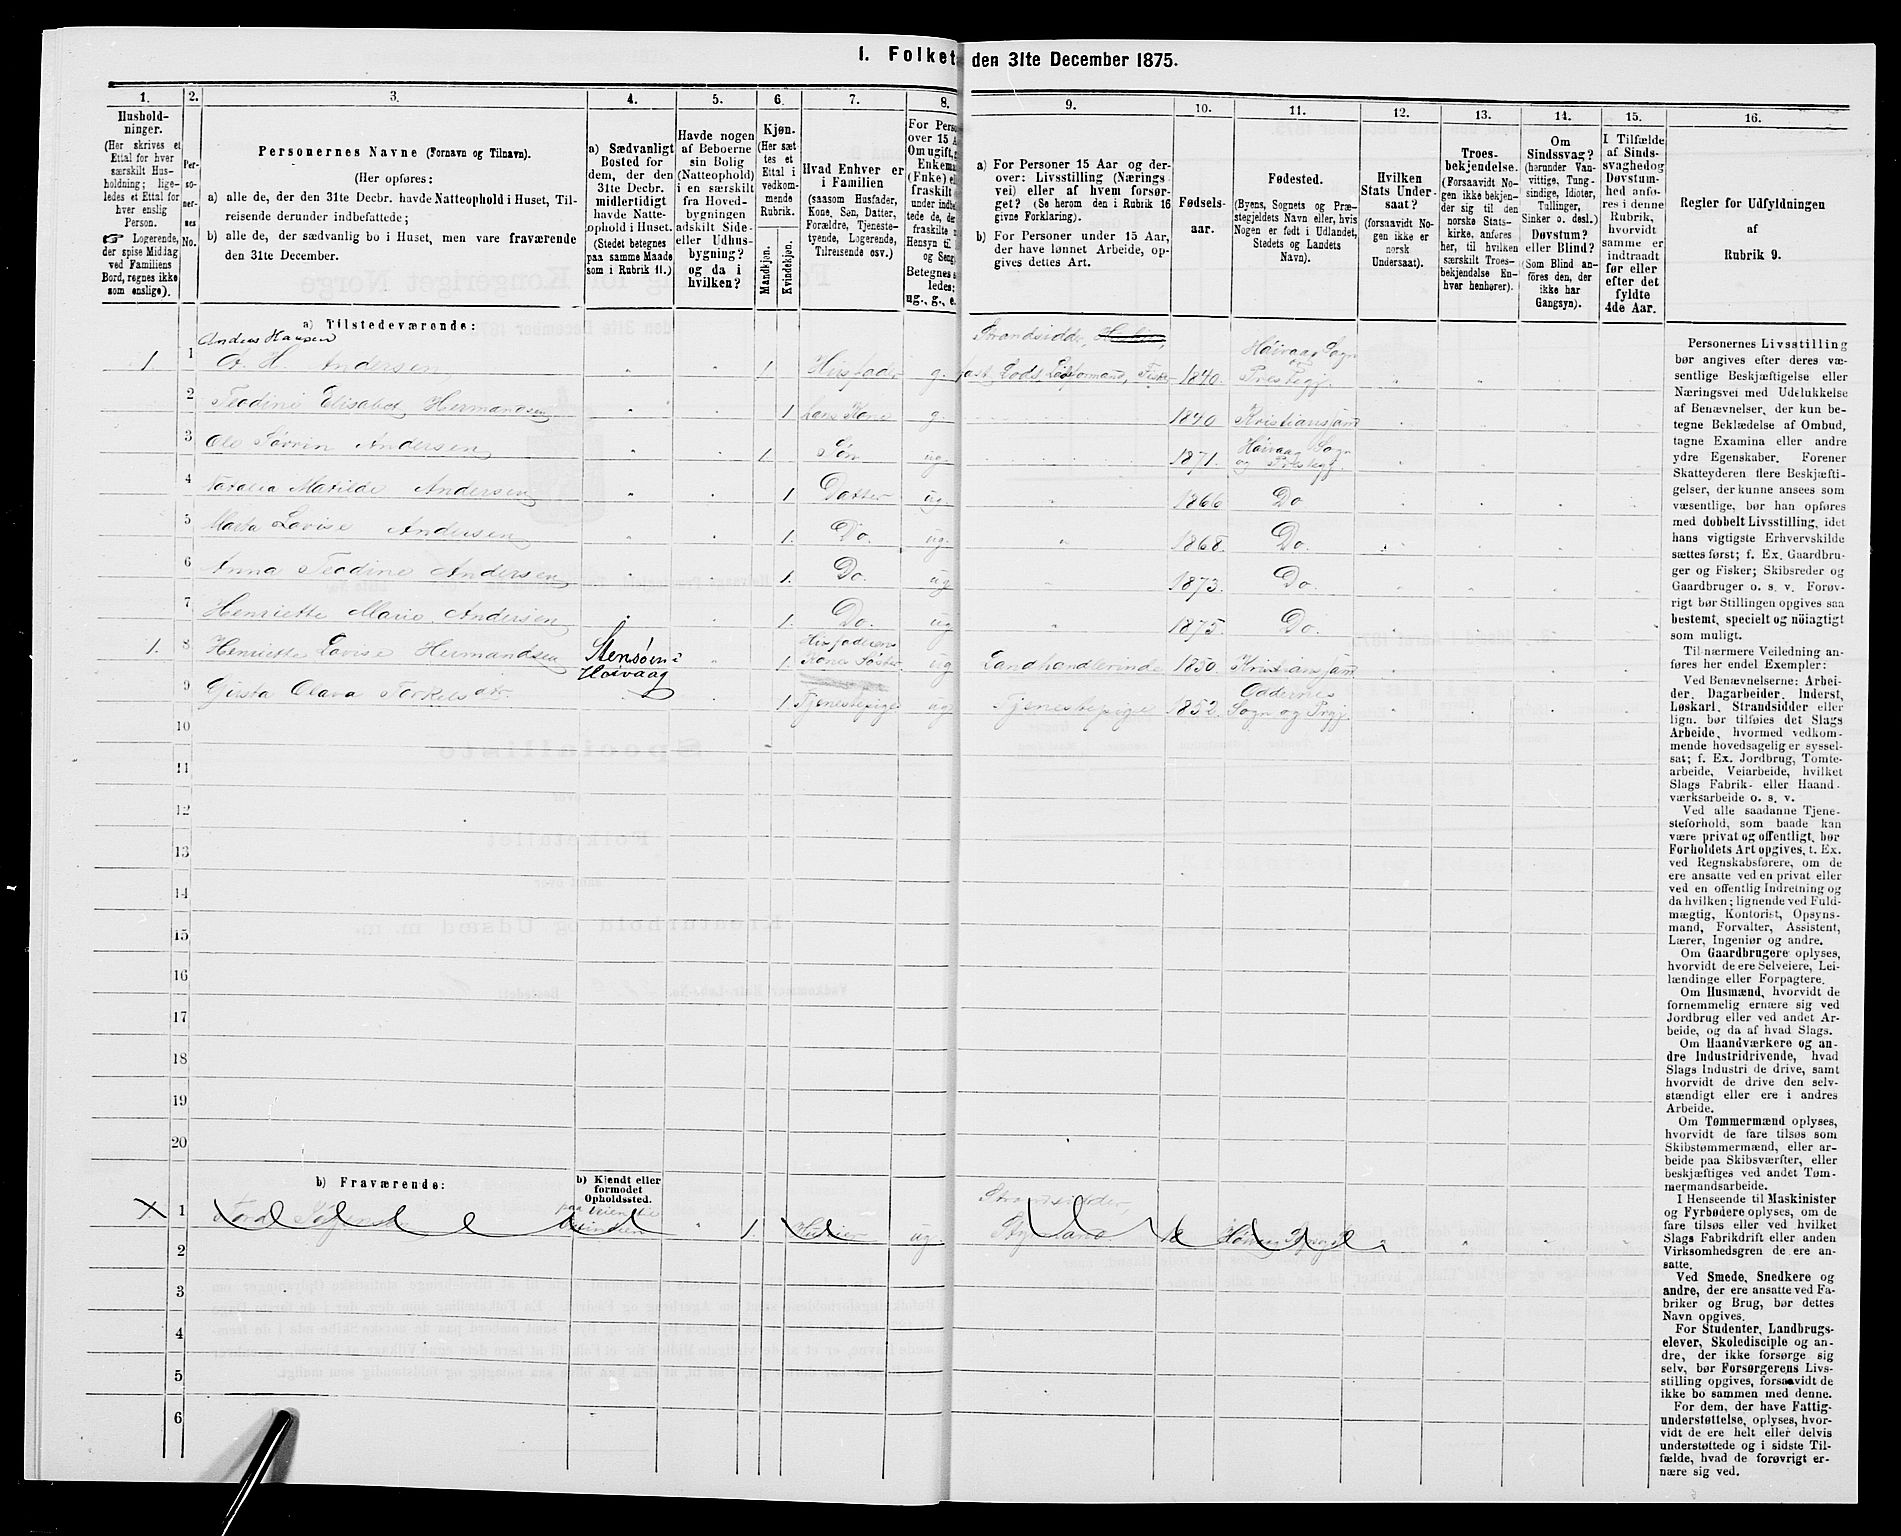 I. Folket den 31te December 1875.
1. 2. 3. 4. 5. 6. 7. 8. 9. 10. 11. 12. 13. 14. 15. 16.
Hushold-
ninger.
(Her skrives et
Ettal for hver
særskilt Hus-
holdning; lige-
ledes et Ettal for
hver enslig
Person.
☞ Logerende,
der spise Middag
ved Familiens
Bord, regnes ikke
som enslige).
Per-
so-
ner-
nes
No.
Personernes Navne (Fornavn og Tilnavn).
(Her opføres:
a) alle de, der den 31te Decbr. havde Natteophold i Huset, Til-
reisende derunder indbefattede;
b) alle de, der sædvanlig bo i Huset, men vare fraværende
den 31te December.
a) Sædvanligt
Bosted for
dem, der den
31te Decbr.
midlertidigt
havde Natte-
ophold i Huset.
(Stedet betegnes
paa samme Maade
som i Rubrik 11.)
Havde nogen
af Beboerne
sin Bolig
(Natteophold)
i en særskilt
fra Hoved-
bygningen
adskilt Side-
eller Udhus-
bygning?
og da i
hvilken?
Kjøn.
(Her sæt
tes et
Ettal i
vedkom-
mende
Rubrik.
Mandkjøn.
Kvindekjøn.
Hvad Enhver er
i Familien
(saasom Husfader,
Kone, Søn, Datter,
Forældre, Tjeneste-
tyende, Logerende,
Tilreisende osv.)
For Perso
over 15 A
Om ugift, g
Enkema
(Enke) el
fraskilt
under indbe
tede de, d
fraskilte
Hensyn til
og Seng
Betegnes s
ledes:
ug., g., e.
a) For Personer 15 Aar og der-
over: Livsstilling (Nærings
vei) eller af hvem forsør-
get? (Se herom den i Rubrik 16
givne Forklaring).
b) For Personer under 15 Aar,
der have lønnet Arbeide, op-
gives dettes Art.
Fødsels-
aar.
Fødested.
(Byens, Sognets og Præ-
stegjeldets Navn eller, hvis
Nogen er født i Udlandet,
Stedets og Landets
Navn).
Hvilken
Stats Under-
saat?
(forsaavidt No-
gen ikke er
norsk
Undersaat).
Troes-
bekjendelse.
(Forsaavidt No-
gen ikke bekjen-
der sig til den
norske Stats-
kirke, anføres
her, til hvilken
særskilt Troes-
bekjendelse En-
hver henhører).
Om
Sindssvag?
(herunder Van-
vittige, Tung-
sindige, Idioter,
Tullinger,
Sinker o. desl.)
Døvstum?
eller Blind?
(Som Blind an-
føres den, der
ikke har
Gangsyn).
I Tilfælde
af Sinds-
svaghedog
Døvstum-
hed anfø-
res i denne
Rubrik,
hvorvidt
samme er
indtraadt
før eller
efter det
fyldte
4de Aar.
Regler for Udfyldningen
af
Rubrik 9.
a) Tilstedeværende:
Anders Hansen Strandsidder,
1 1 A. H. Andersen 1 Husfader g. Lods Fisker 1840. Høivaag Sogn og Prestegj.
2 Teodine Elisabet Hermandsen 1 Hans Kone g. 1840 Kristianssand
3 Ole Sørrin Andersen 1 Søn ug. 1871. Høivaag Sogn og Prestegj.
4 Natalia Matilde Andersen 1 Datter ug. 1866 Do
5 Marta Lovise Andersen 1. Do. ug. 1868. Do.
6 Anna Teodine Andersen 1. Do. ug 1873. Do.
7 Henriette Marie Andersen 1. Do. ug 1875. Do.
1. 8 Henriette Lovise Hermandsen Stensøen i Høivaag 1. Husfaderens Kones Søster ug Landhandlerinde 1850. Kristianssand
9 Olava Torkelsdtr. 1 Tjenestepige ug Tjenestepige 1852. Oddernes Sogn og Prgj.
10
11
12
13
14
15
16
17
18
19
20
b) Fraværende:
b) Kjendt eller
formodet
Opholdssted.
1. 1 1. ug. Strandsidder,
2
3
4
5
6
Personernes Livsstilling
bør angives efter deres væ-
sentlige Beskjæftigelse eller
Næringsvei med Udelukkelse
af Benævnelser, der kun be-
tegne Beklædelse af Ombud,
tagne Examina eller andre
ydre Egenskaber. Forener
Skatteyderen flere Beskjæfti-
gelser, der kunne ansees som
væsentlige, bør han opføres
med dobbelt Livsstilling, idet
hans vigtigste Erhvervskilde
sættes først; f. Ex. Gaardbru-
ger og Fisker; Skibsreder og
Gaardbruger o. s. v. Forøv-
rigt bør Stillingen opgives saa
bestemt, specielt og nøiagtigt
som muligt.
Til nærmere Veiledning an-
føres her endel Exempler:
Ved Benævnelserne: Arbei-
der, Dagarbeider, Inderst,
Løskarl, Strandsidder eller
lign. bør tilføies det Slags
Arbeide, hvormed vedkom-
mende hovedsagelig er syssel-
sat; f. Ex. Jordbrug, Tomte-
arbeide, Veiarbeide, hvilket
Slags Fabrik- eller Haand-
værksarbeide o. s. v.
Ved alle saadanne Tjene-
steforhold, som baade kan
være privat og offentligt, bør
Forholdets Art opgives, t. Ex.
ved Regnskabsførere, om de
ere ansatte ved en privat eller
ved en offentlig Indretning og
da hvilken; lignende ved Fuld-
mægtig, Kontorist, Opsyns-
mand, Forvalter, Assistent,
Lærer, Ingeniør og andre.
Om Gaardbrugere oplyses,
hvorvidt de ere Selveiere, Lei-
lændinge eller Forpagtere.
Om Husmænd, hvorvidt de
fornemmelig ernære sig ved
Jordbrug eller ved andet Ar-
beide, og da af hvad Slags.
Om Haandværkere og an-
dre Industridrivende, hvad
Slags Industri de drive, samt
hvorvidt de drive den selv-
stændigt eller ere i andres
Arbeide.
Om Tømmermænd oplyses,
hvorvidt de fare tilsøs som
Skibstømmermænd, eller ar-
beide paa Skibsværfter, eller
beskjæftiges ved andet Tøm-
mermandsarbeide.
I Henseende til Maskinister
og Fyrbødere oplyses, om de
fare tilsøs eller ved hvilket
Slags Fabrikdrift eller anden
Virksomhedsgren de ere an-
satte.
Ved Smede, Snedkere og
andre, der ere ansatte ved Fa-
briker og Brug, bør dettes
Navn opgives.
For Studenter, Landbrugs-
elever, Skoledisciple og an-
dre, der ikke forsørge sig
selv, bør Forsørgerens Livs-
stilling opgives, forsaavidt de
ikke bo sammen med denne.
For dem, der have Fattig-
understøttelse, oplyses, hvor-
vidt de ere helt eller delvis
understøttede og i sidste Til-
fælde, hvad de forøvrigt er-
nære sig ved.